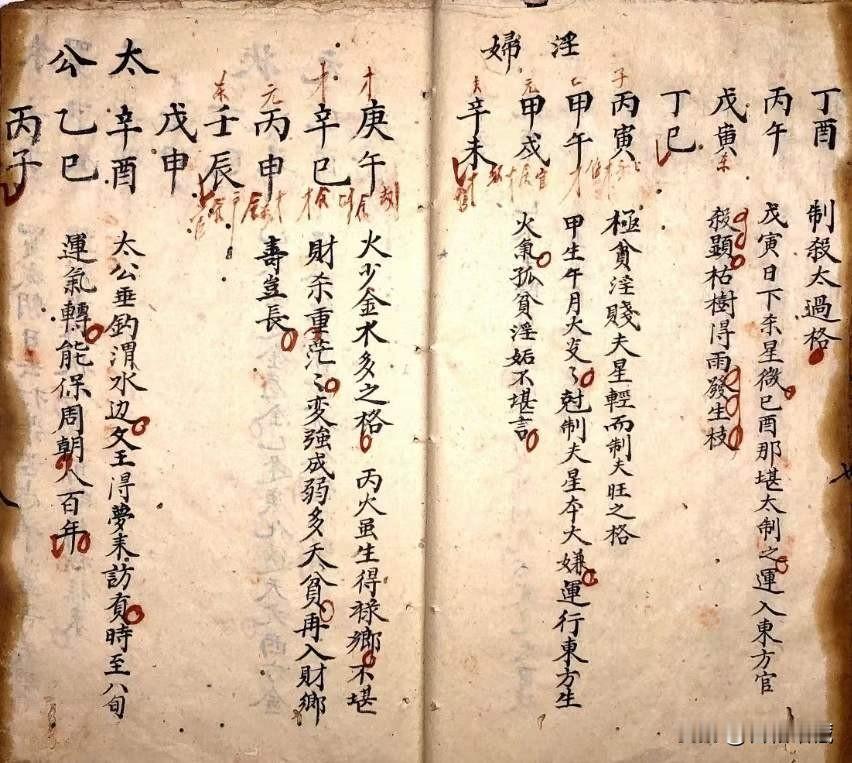 丁酉 制殺太過格
丙午 戊寅日下杀星微巳酉那堪太制之運入東方官
戊寅 殺顯枯樹得雨發生枝
丁巳
淫婦
丙寅 極貧淫賤夫星輕而制夫旺之格
甲午 甲生午月火炎々尅制夫星夲大嫌運行東方生
甲戌 火氣孤貧淫姤不堪言
辛未
庚午 火少金水多之格 丙火虽生得祿鄉不堪
辛巳 財杀重茫〻变強成弱多夭貧再入財鄉
丙申 壽豈長
壬辰
太公
戊申
辛酉 太公垂釣渭水边文王得夢来訪賢時至八旬
乙巳 運氣轉能保周朝八百年
丙子